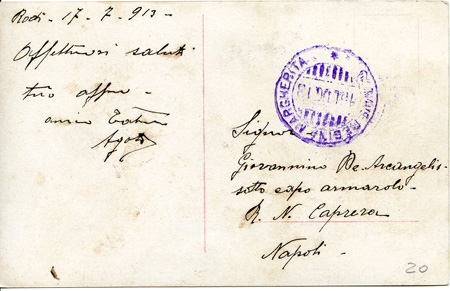 Rodi - 17 - 7 - 913 -
Affettuosi saluti
tuo affmo
amico
REGINA MARGHERITA
Signor
Giovannino De Arcangelis
sotto capo armarolo -
R. N. Caprera
Napoli -
20